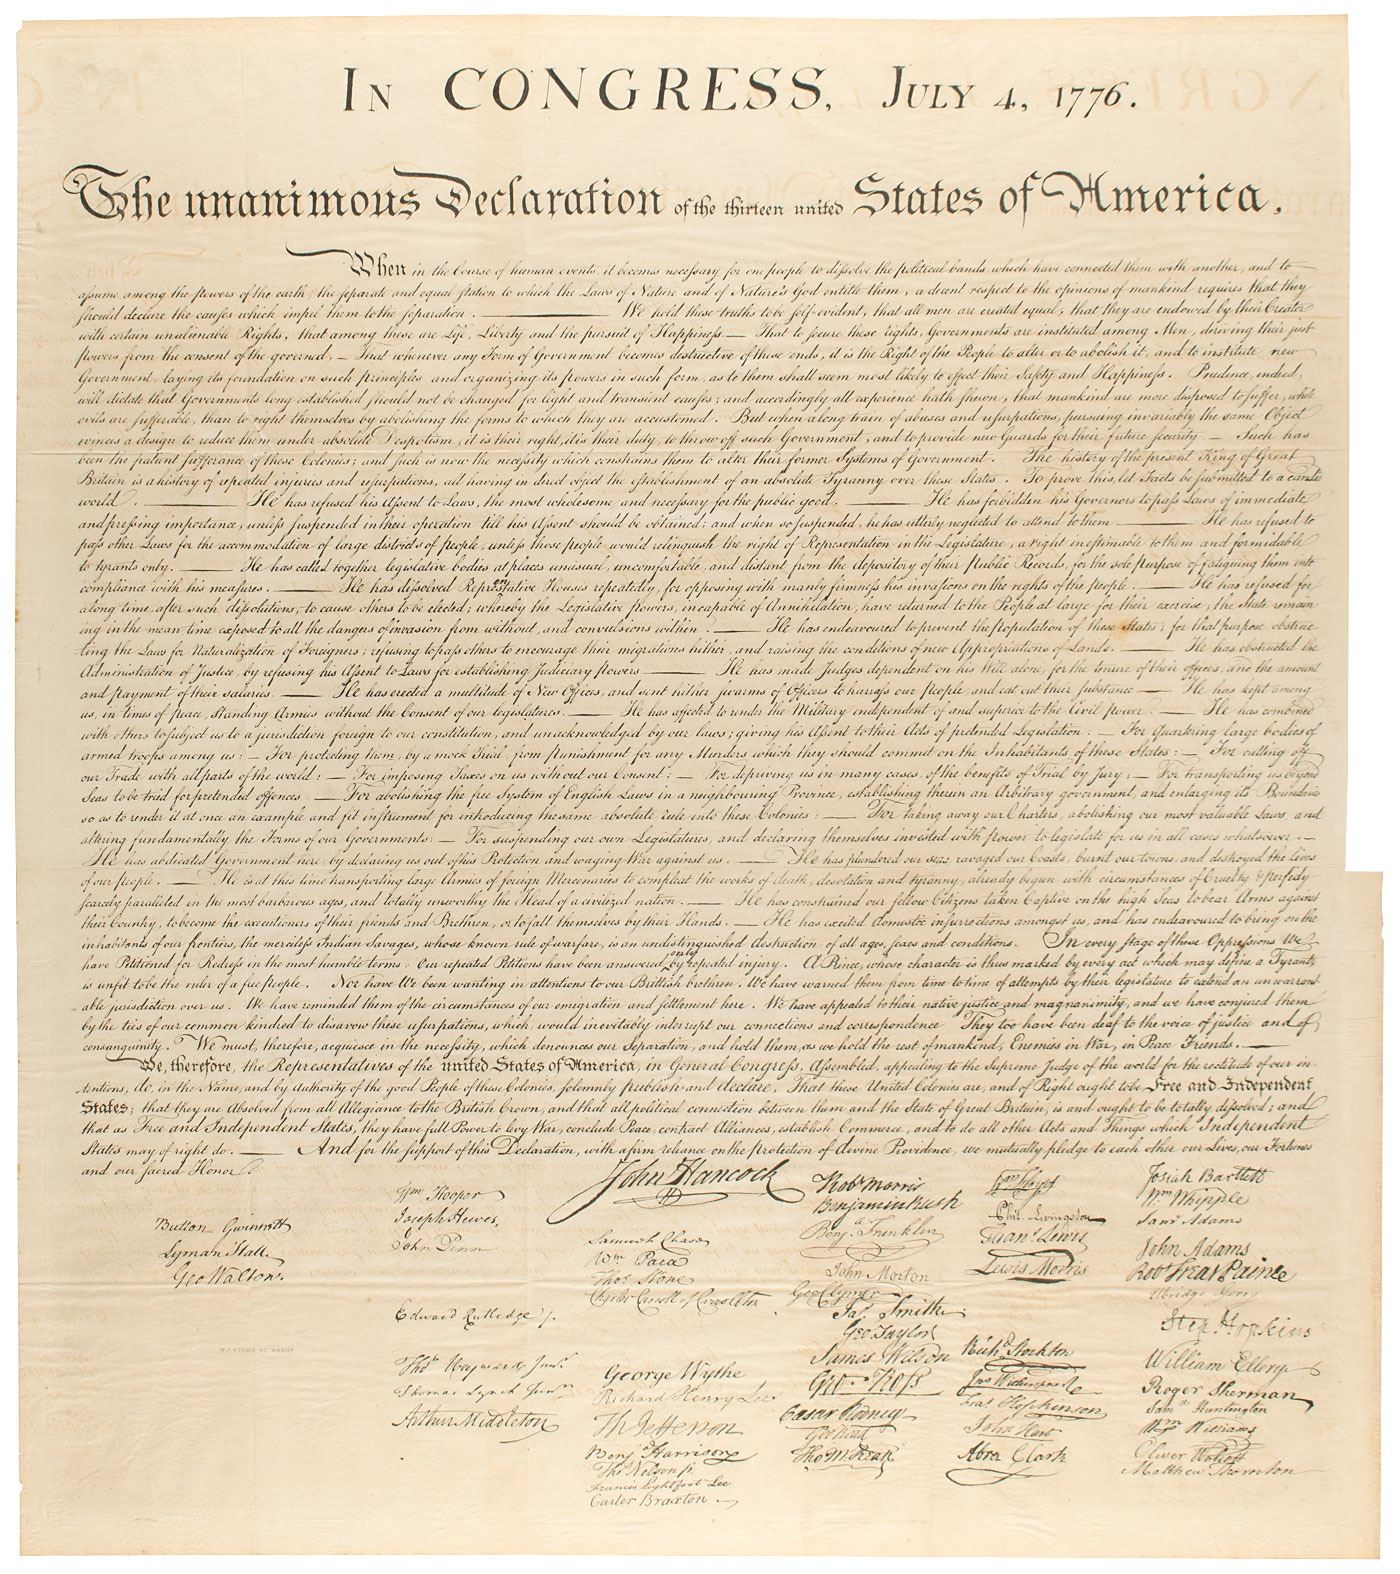 IN CONGRESS, JULY 4, 1776.
The unanimous Declaration of the thirteen united States of America,
When in the Course of human events, it becomes necessary for one people to dissolve the political bands which have connected them with another, and to
assume among the powers of the earth, the separate and equal station to which the Laws of Nature and of Nature's God entitle them, a decent respect to the opinions of mankind requires that they
should declare the causes which impel them to the separation. — We hold these truths to be self-evident, that all men are created equal, that they are endowed by their Creator
with certain unalienable Rights, that among these are Life, Liberty and the pursuit of Happiness. — That to secure these rights, Governments are instituted among Men, deriving their just
powers from the consent of the governed, — That whenever any Form of Government becomes destructive of these ends, it is the Right of the People to alter or to abolish it, and to institute new
Government, laying its foundation on such principles and organizing its powers in such form, as to them shall seem most likely to effect their Safety and Happiness. Prudence, indeed,
will dictate that Governments long established should not be changed for light and transient causes; and accordingly all experience hath shewn, that mankind are more disposed to suffer, while
evils are sufferable, than to right themselves by abolishing the forms to which they are accustomed. But when a long train of abuses and usurpations, pursuing invariably the same Object
evinces a design to reduce them under absolute Despotism, it is their right, it is their duty, to throw off such Government, and to provide new Guards for their future security. — Such has
been the patient sufferance of these Colonies; and such is now the necessity which constrains them to alter their former Systems of Government. The history of the present King of Great
Britain is a history of repeated injuries and usurpations, all having in direct object the establishment of an absolute Tyranny over these States. To prove this, let Facts be submitted to a candid
world. — He has refused his Assent to Laws, the most wholesome and necessary for the public good. — He has forbidden his Governors to pass Laws of immediate
and pressing importance, unless suspended in their operation till his Assent should be obtained; and when so suspended, he has utterly neglected to attend to them. — He has refused to
pass other Laws for the accommodation of large districts of people, unless those people would relinquish the right of Representation in the Legislature, a right inestimable to them and formidable
to tyrants only. — He has called together legislative bodies at places unusual, uncomfortable, and distant from the depository of their Public Records, for the sole purpose of fatiguing them into
compliance with his measures. — He has dissolved Representative Houses repeatedly, for opposing with manly firmness his invasions on the rights of the people. — He has refused for
a long time, after such dissolutions, to cause others to be elected; whereby the Legislative powers, incapable of Annihilation, have returned to the People at large for their exercise; the State remain
ing in the mean time exposed to all the dangers of invasion from without, and convulsions within. — He has endeavoured to prevent the population of these States; for that purpose obstruc
ting the Laws for Naturalization of Foreigners; refusing to pass others to encourage their migrations hither, and raising the conditions of new Appropriations of Lands. — He has obstructed the
Administration of Justice, by refusing his Assent to Laws for establishing Judiciary powers — He has made Judges dependent on his Will alone, for the tenure of their offices, and the amount
and payment of their salaries. — He has erected a multitude of New Offices, and sent hither swarms of Officers to harrass our people, and eat out their substance — He has kept among
us, in times of peace, Standing Armies without the Consent of our legislatures. — He has affected to render the Military independent of and superior to the Civil power. — He has combined
with others to subject us to a jurisdiction foreign to our constitution, and unacknowledged by our laws; giving his Assent to their Acts of pretended Legislation: — For Quartering large bodies of
armed troops among us: — For protecting them, by a mock Trial, from punishment for any Murders which they should commit on the Inhabitants of these States: — For cutting off
our Trade with all parts of the world: — For imposing Taxes on us without our Consent: — For depriving us in many cases, of the benefits of Trial by Jury: — For transporting us beyond
Seas to be tried for pretended offences — For abolishing the free System of English Laws in a neighbouring Province, establishing therein an Arbitrary government, and enlarging its Boundaries
so as to render it at once an example and fit instrument for introducing the same absolute rule into these Colonies: — For taking away our Charters, abolishing our most valuable Laws, and
altering fundamentally the Forms of our Governments: — For suspending our own Legislatures, and declaring themselves invested with power to legislate for us in all cases whatsoever. —
He has abdicated Government here, by declaring us out of his Protection and waging War against us. — He has plundered our seas, ravaged our Coasts, burnt our towns, and destroyed the lives
of our people. — He is at this time transporting large Armies of foreign Mercenaries to compleat the works of death, desolation and tyranny, already begun with circumstances of Cruelty & perfidy
scarcely paralleled in the most barbarous ages, and totally unworthy the Head of a civilized nation. — He has constrained our fellow Citizens taken Captive on the high Seas to bear Arms against
their Country, to become the executioners of their friends and Brethren, or to fall themselves by their Hands. — He has excited domestic insurrections amongst us, and has endeavoured to bring on the
inhabitants of our frontiers, the merciless Indian Savages, whose known rule of warfare, is an undistinguished destruction of all ages, sexes and conditions. In every stage of these Oppressions We
have Petitioned for Redress in the most humble terms: Our repeated Petitions have been answered only by repeated injury. A Prince, whose character is thus marked by every act which may define a Tyrant,
is unfit to be the ruler of a free people. Nor have We been wanting in attentions to our Brittish brethren. We have warned them from time to time of attempts by their legislature to extend an unwarrant
able jurisdiction over us. We have reminded them of the circumstances of our emigration and settlement here. We have appealed to their native justice and magnanimity, and we have conjured them
by the ties of our common kindred to disavow these usurpations, which, would inevitably interrupt our connections and correspondence They too have been deaf to the voice of justice and of
consanguinity. We must, therefore, acquiesce in the necessity, which denounces our Separation, and hold them, as we hold the rest of mankind, Enemies in War, in Peace Friends. —
We, therefore, the Representatives of the united States of America, in General Congress, Assembled, appealing to the Supreme Judge of the world for the rectitude of our in
tentions, do, in the Name, and by Authority of the good People of these Colonies, solemnly publish and declare, That these United Colonies are, and of Right ought to be Free and Independent
States; that they are Absolved from all Allegiance to the British Crown, and that all political connection between them and the State of Great Britain, is and ought to be totally dissolved; and
that as Free and Independent States, they have full Power to levy War, conclude Peace, contract Alliances, establish Commerce, and to do all other Acts and Things which Independent
States may of right do. — And for the support of this Declaration, with a firm reliance on the protection of divine Providence, we mutually pledge to each other our Lives, our Fortunes
and our sacred Honor.
Button Gwinnett
Lyman Hall
Geo Walton.
Wm Hooper
Joseph Hewes,
John Penn
Edward Rutledge /.
Thos Heyward Junr.
Thomas Lynch Junr.
Arthur Middleton
John Hancock
Samuel Chase
Wm. Paca
Thos. Stone
Charles Carroll of Carrollton
George Wythe
Richard Henry Lee
Th Jefferson
Benja Harrison
Thos Nelson jr.
Francis Lightfoot Lee
Carter Braxton
Robt Morris
Benjamin Rush
Benja. Franklin
John Morton
Geo Clymer
Jas. Smith.
Geo. Taylor
James Wilson
Geo. Ross
Caesar Rodney
Geo Read
Tho M:Kean
Wm Floyd
Phil. Livingston
Frans. Lewis
Lewis Morris
Richd. Stockton
Jno Witherspoon
Fras. Hopkinson
John Hart
Abra Clark
Josiah Bartlett
Wm. Whipple
Saml Adams
John Adams
Robt Treat Paine
Elbridge Gerry
Step. Hopkins
William Ellery
Roger Sherman
Saml Huntington
Wm Williams
Oliver Wolcott
Matthew Thornton
W. J. STONE SC. WASHN